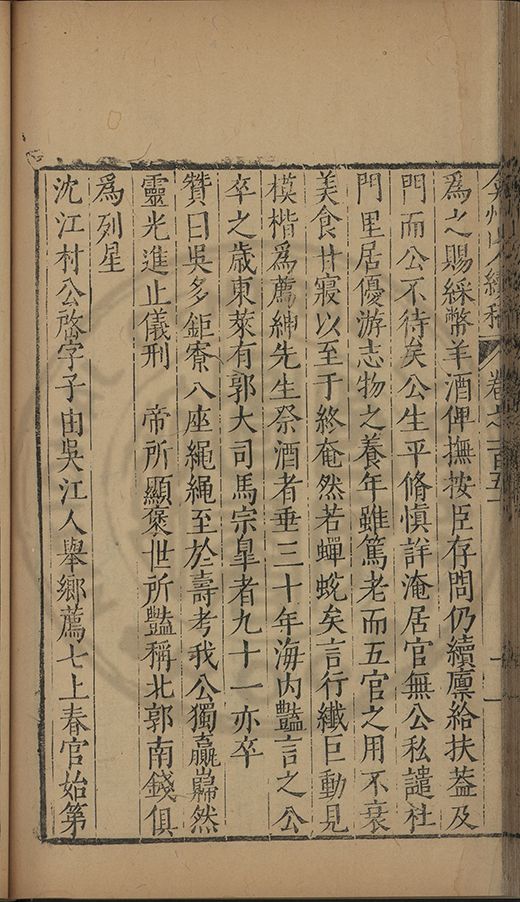 弇州山人續稿 卷之一百五十一
為之賜綵幣羊酒俾撫按臣存問仍續廩給扶葢及
門而公不待矣公生平脩慎詳淹居官無公私譴杜
門里居優游志物之養年雖篤老而五官之用不衰
美食甘寢以至于終奄然若蟬蛻矣言行纖巨動見
模楷爲薦紳先生祭酒者垂三十年海内豔言之公
卒之歳東萊有郭大司馬宗臯者九十一亦卒
贊曰吳多鉅寮八座繩繩至於壽考我公獨贏巋然
靈光進止儀刑 帝所顯褒世所豔稱北郭南錢俱
爲列星
沈江村公啓字子由吳江人舉鄉薦七上春官始第